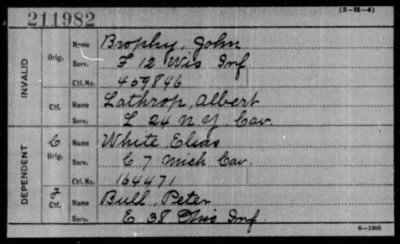 211982
(3-H-4)
INVALID
Orig.
Name Brophy, John
Serv. F 12 Wis Inf
Ctf. No. 459846
Ctf.
Name Lathrop, Albert
Serv. L 24 N Y. Cav.
DEPENDENT
C
Orig.
Name White Elias
Serv. C 7 Mich Cav.
Ctf. No. 154471
Ctf.
Name Bull, Peter
Serv. E 38 Ohio Inf
6—1805